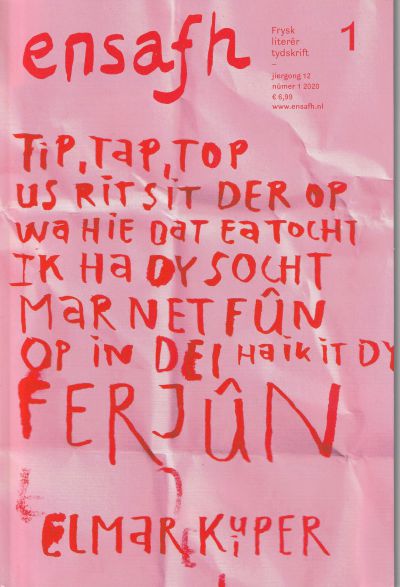 ensafh
Frysk
literêr
tydskrift
–
jiergong 12
nûmer 1 2020
€ 6,99
www.ensafh.nl
1
TiP, TaP, TOP
US RITS IT DER OP
Wa HIE DaT Ea TOCHT
IK Ha DY SOCHT
MaR NET FÛN
OP iN DEI Ha ik IT DY
FERJÛN
ELMAR KUIPER